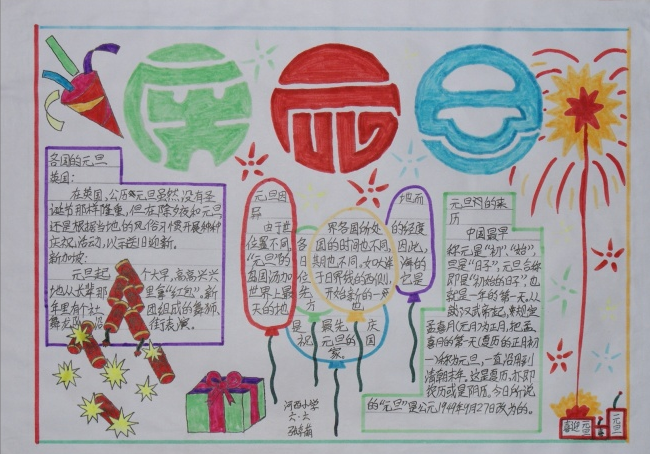 庆元旦
各国的元旦
英国:
在英国,公历元旦虽然没有圣
诞节那样隆重,但在除夕夜和元旦
还是根据当地的风俗习惯开展种种
庆祝活动,以示送旧迎新。
新加坡:
元旦起 个大早,高高兴兴
地从长辈那 里拿“红包”。新
年里有个社 团组成的舞狮、
街表演。
元旦因
地而
异
由于世 界各国所处 的经度
位置不同, 各国的时间也不同, 因此,
“元旦”的 日期也不同。
日界线的西侧,
世界上最 先 开始新的一天
的地方
是最先庆
祝元旦的国
家。
元旦的来
历
中国最早
称元是“初”、“始”,
旦是“日子”,元旦合称
即是“初始的日子”,也
就是一年的第一天。从
汉武帝起,
孟喜月(元月)为正月,把孟
喜月的第一天(夏历的正月初
一)称为元旦,一直沿用到
清朝末年。这是夏历,亦即
农历或是阴历。今日所说
的“元旦”是公元1949年9月27日改为的。
河西小学
六.六
喜迎元旦
元旦